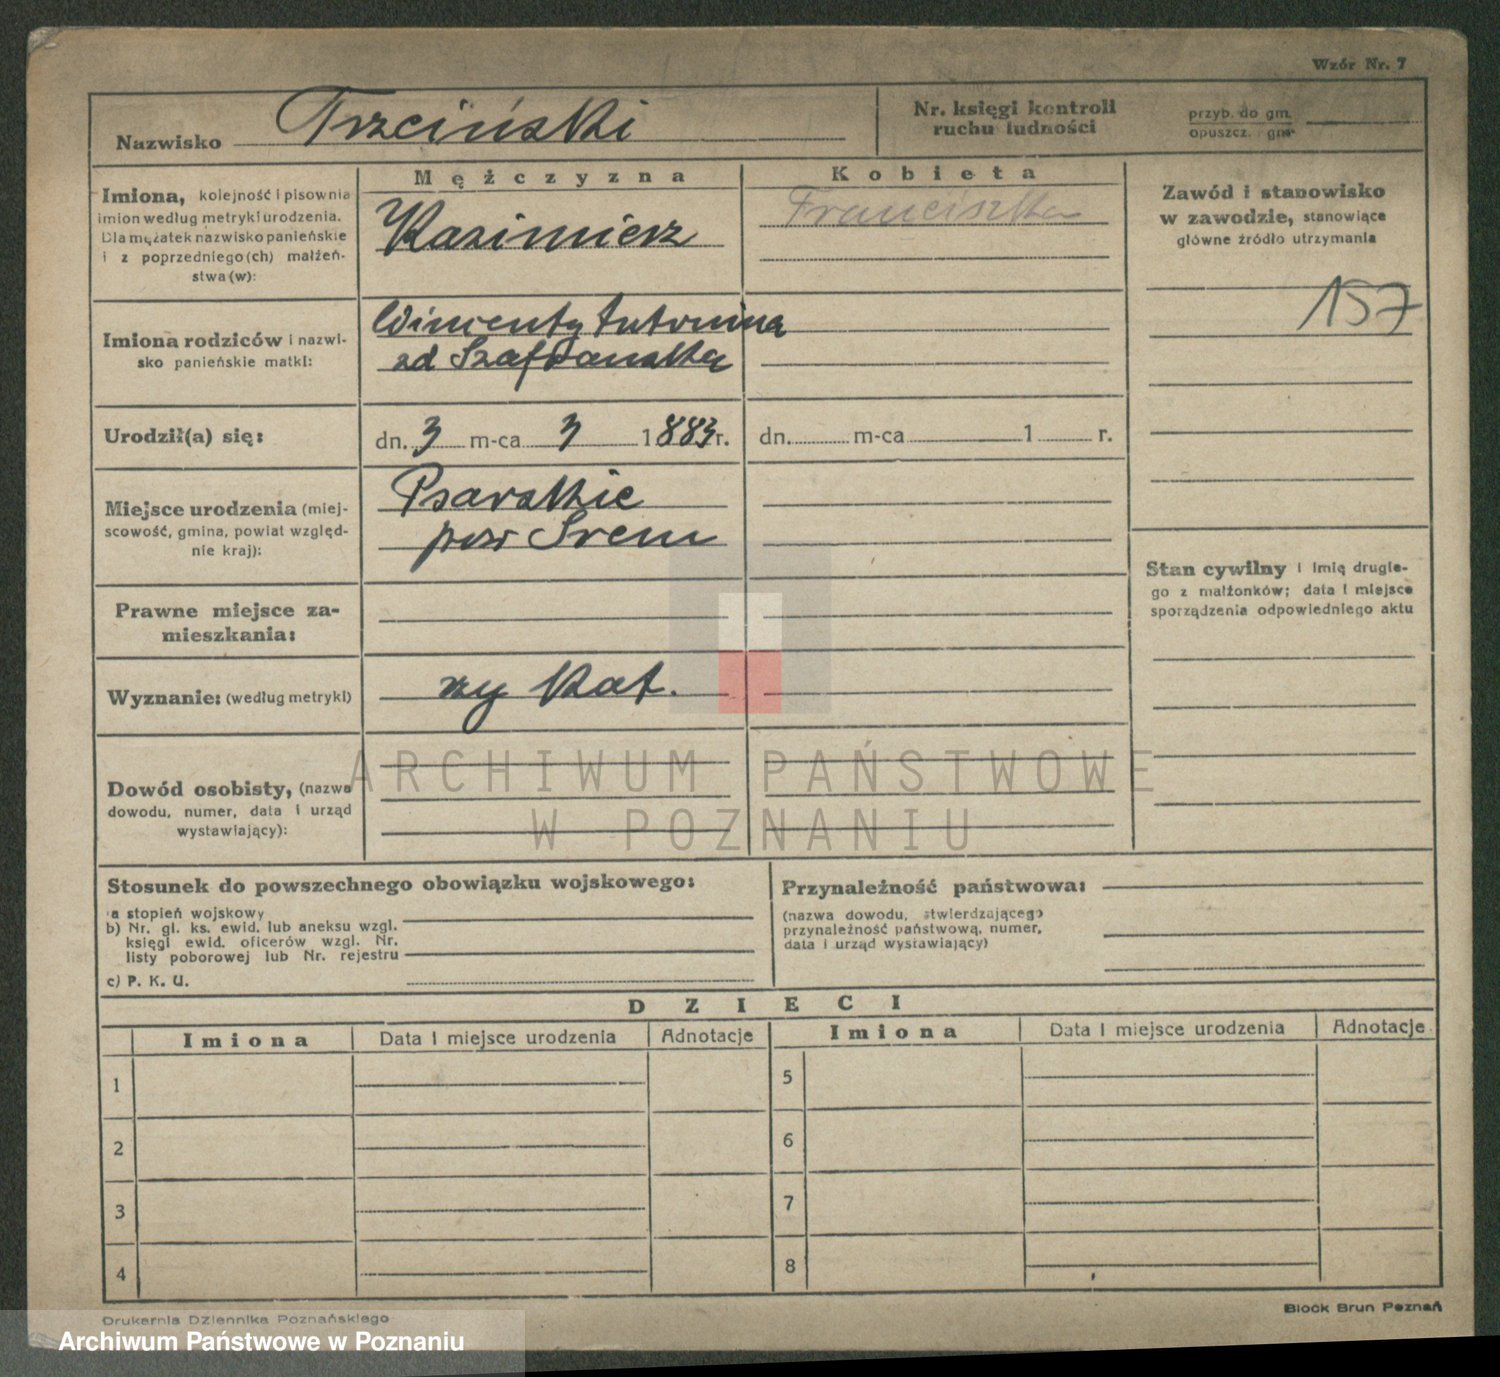 Wzór Nr. 7
Nazwisko Trzciński
Nr. księgi kontroli
ruchu ludności
przyb. do gm.
opuszcz. gm.
Mężczyzna
Kobieta
Imiona, kolejność i pisownia
imion według metryki urodzenia.
Dla mężatek nazwisko panieńskie
i z poprzedniego(ch) małżeń-
stwa(w):
Kazimierz
Franciszka
Zawód i stanowisko
w zawodzie, stanowiące
główne źródło utrzymania
157
Imiona rodziców i nazwi-
sko panieńskie matki:
Wincenty Antonina
zd Szafrańska
Urodził(a) się:
dn. 3 m-ca 3 1883 r.
dn. m-ca 1 r.
Miejsce urodzenia (miej-
scowość, gmina, powiat względ-
nie kraj):
Psarskie
pow Śrem
Stan cywilny i imię drugie-
go z małżonków; data i miejsce
sporządzenia odpowiedniego aktu
Prawne miejsce za-
mieszkania:
Wyznanie: (według metryki)
rzy Kat.
Dowód osobisty, (nazwa
dowodu, numer, data i urząd
wystawiający):
ARCHIWUM PAŃSTWOWE
W POZNANIU
Stosunek do powszechnego obowiązku wojskowego:
a stopień wojskowy
b) Nr. gł. ks. ewid. lub aneksu wzgl.
księgi ewid. oficerów wzgl. Nr.
listy poborowej lub Nr. rejestru
c) P. K. U.
Przynależność państwowa:
(nazwa dowodu, stwierdzającego
przynależność państwową, numer,
data i urząd wystawiający)
DZIECI
Imiona Data i miejsce urodzenia Adnotacje Imiona Data i miejsce urodzenia Adnotacje
1 5
2 6
3 7
4 8
Drukarnia Dziennika Poznańskiego
Block Brun Poznań
Archiwum Państwowe w Poznaniu